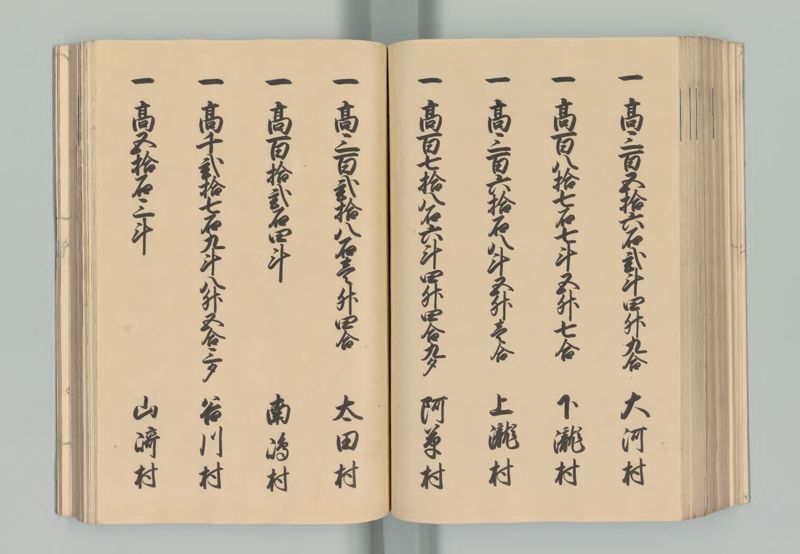 一 高三百五拾六石弐斗四升九合 大河村
一 高百八拾七石七斗五升七合 下瀧村
一 高三百六拾石八斗五升壱合 上瀧村
一 高百七拾八石六斗四升四合九夕 阿草村
一 高三百弐拾八石壱升四合 太田村
一 高百拾弐石四斗 南嶋村
一 高千弐拾七石九斗八升五合三夕 谷川村
一 高五拾石三斗 山濟村